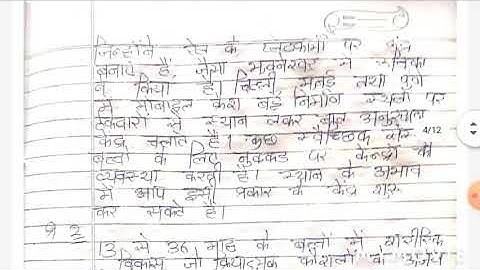 जिन्होंने रेल के प्लेटफार्मों पर
बनाए हैं, जैसा भुवनेश्वर में
ने किया है। दिल्ली, मुंबई तथा पुणे
में मोबाइल क्रेश बड़े निर्माण स्थलों पर
ठेकेदारों से स्थान लेकर बाल
केंद्र चलाते हैं। कुछ स्वैच्छिक
4/12
बच्चों के लिए नुक्कड़ पर केन्द्रों की
व्यवस्था करती हैं। स्थान के अभाव
में आप इसी प्रकार के केंद्र शुरू
कर सकते हैं।
प्र 2
13 से 36 माह के बच्चों में शारीरिक
विकास जो क्रियात्मक कौशलों के